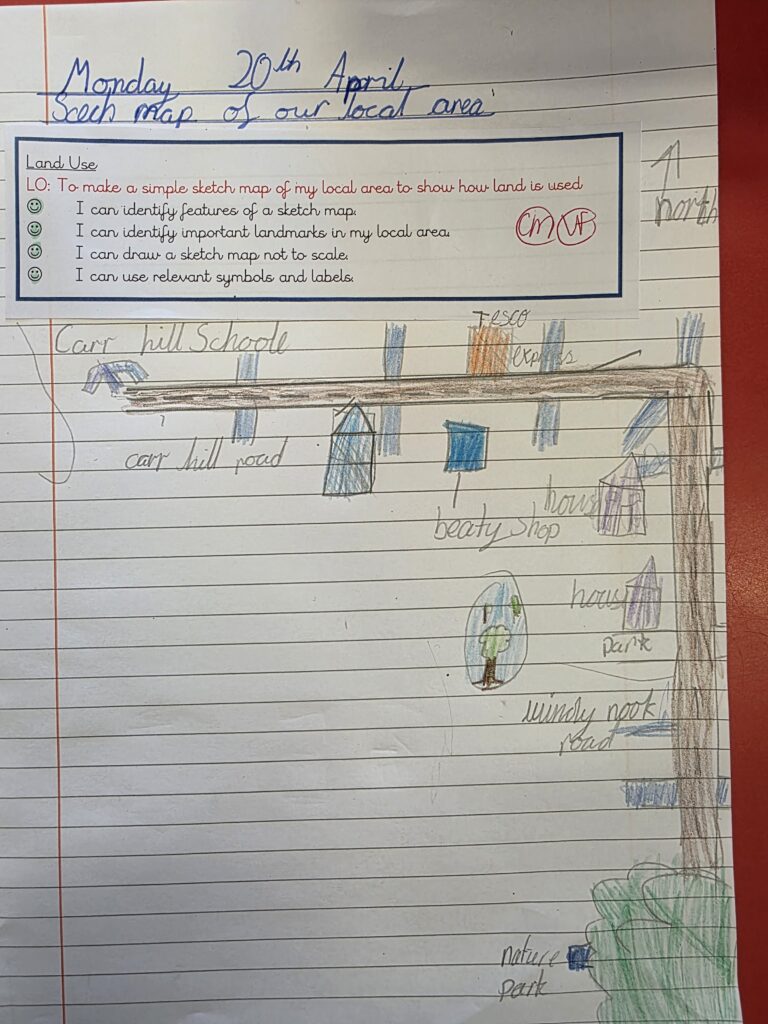 Monday 20th April
Scech map of our local area
Land Use
LO: To make a simple sketch map of my local area to show how land is used
I can identify features of a sketch map.
I can identify important landmarks in my local area.
I can draw a sketch map not to scale.
I can use relevant symbols and labels.
CM VF
north
Tesco
express
Carr hill Schoole
carr hill road
beaty shop
hous
hous
park
windy nook
road
nature
park